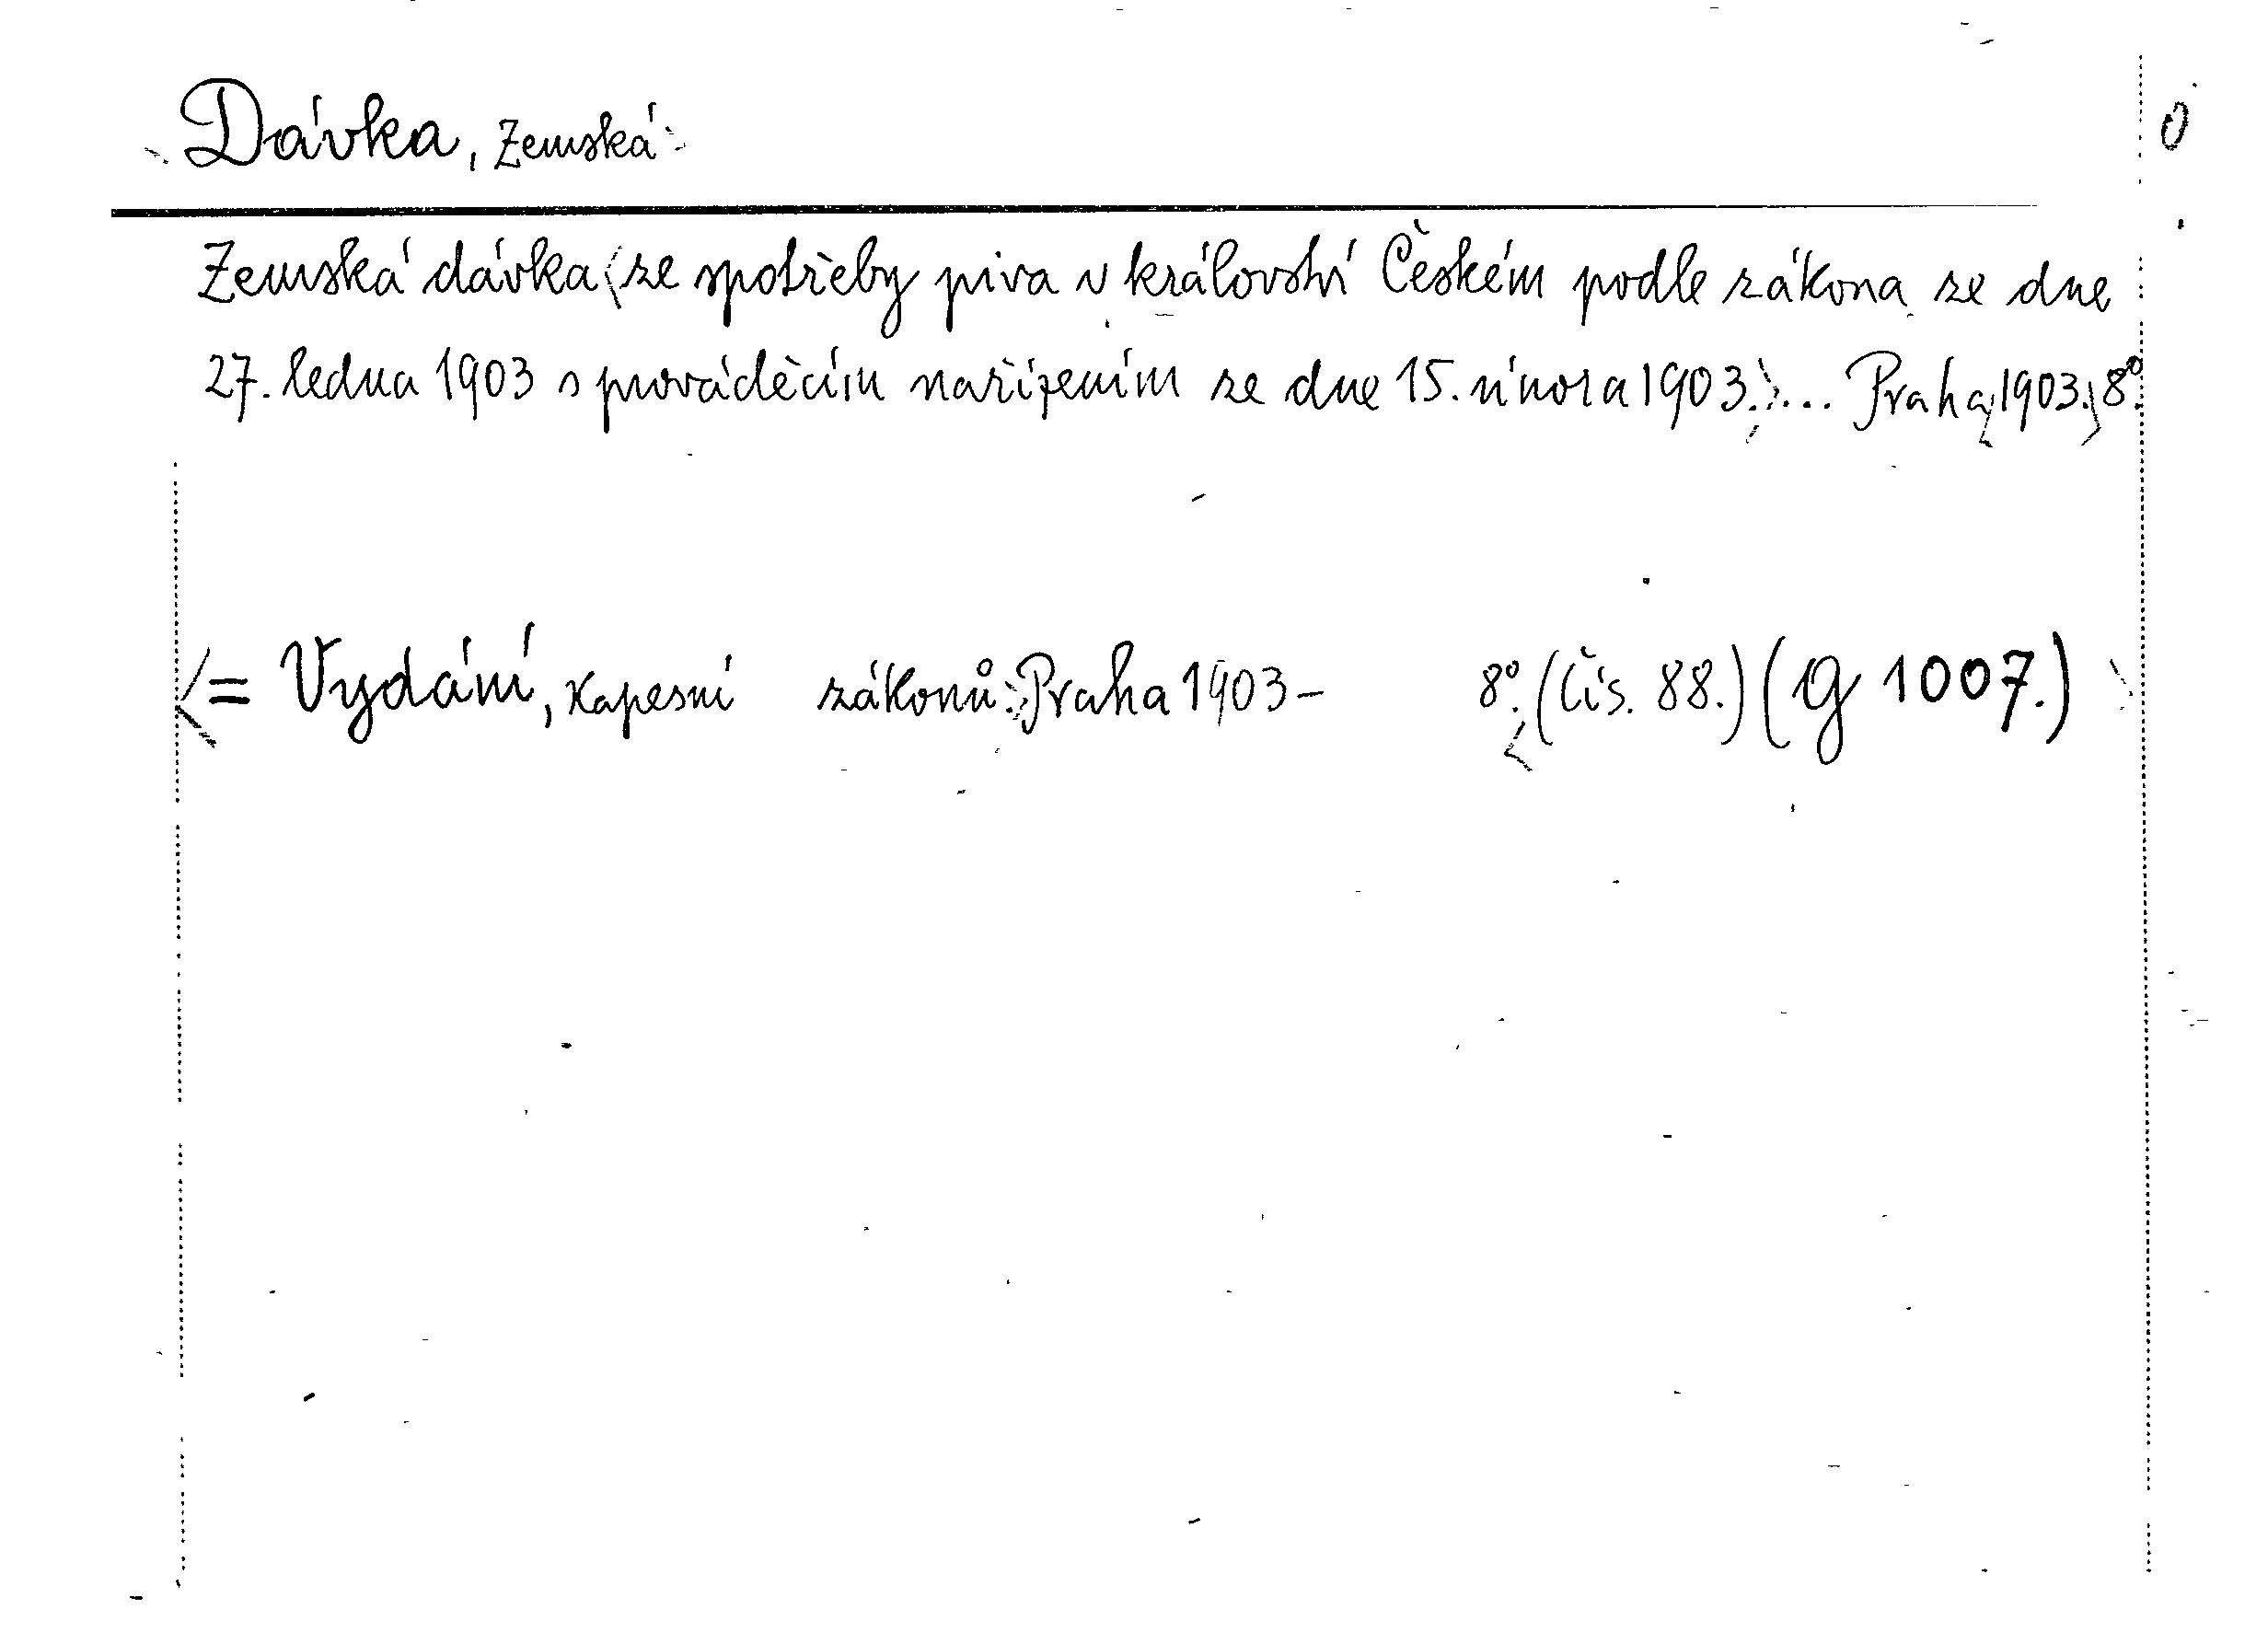 Dávka, Zemská
0
Zemská dávka ze spotřeby piva v království Českém podle zákona ze dne
27. ledna 1903 s prováděcím nařízením ze dne 15. února 1903.... Praha, 1903. 8°.
= Vydání, kapesní zákonů. Praha 1903– 8°. (Čís. 88.) (g 1007.)